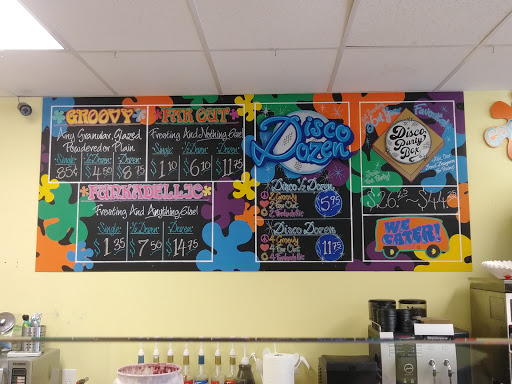 GROOVY
Any Granular, Glazed
Powdered or Plain
Single: ½ Dozen: Dozen:
85¢ $4.50 $8.75
FAR OUT
Frosting And Nothing Else!
Single: ½ Dozen: Dozen:
$1.10 $6.10 $11.75
FUNKADELLIC
Frosting And Anything Else!
Single: ½ Dozen: Dozen:
$1.35 $7.50 $14.75
Disco
Dozen
Disco ½ Dozen
2 Groovy
2 Far Out
2 Funkadellic
$5.95
Disco Dozen
4 Groovy
4 Far Out
4 Funkadellic
$11.75
Favorite
Disco
Party
Box
WE
CATER!